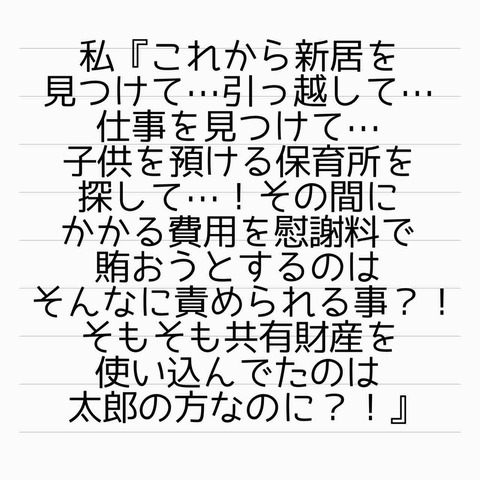 私『これから新居を
見つけて…引っ越して…
仕事を見つけて…
子供を預ける保育所を
探して…！その間に
かかる費用を慰謝料で
賄おうとするのは
そんなに責められる事？！
そもそも共有財産を
使い込んでたのは
太郎の方なのに？！』